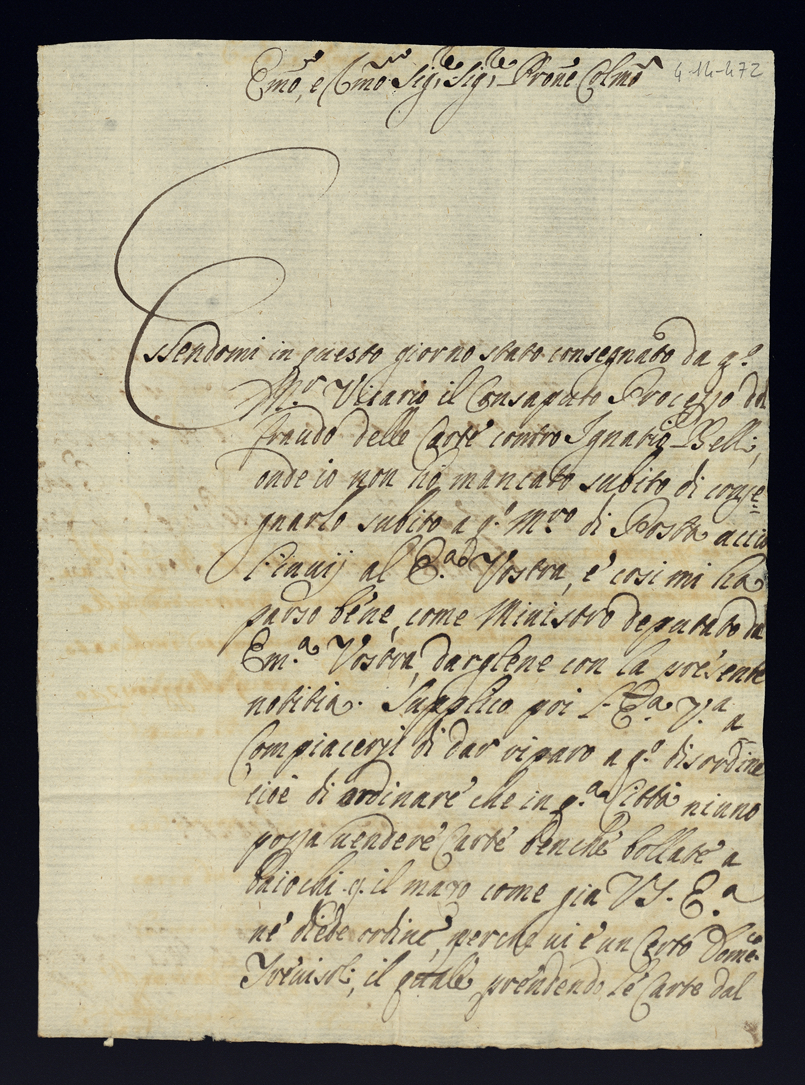 Emõ, e Rmõ Sig.re Sig.re Prõne Colmõ
4-14-472
Essendomi in questo giorno stato consegnato da q.o
M.r Vicario il Consaputo Processo del
fraudo delle Carte contro Ignatio Belli,
onde io non hò mancato subito di conse=
gnarlo subito a q.o M.ro di Posta accio
l'inuij al E.a Vostra, e' cosi mi ha
parso bene, come Ministro deputato da
Em.a Vostra, darglene con la presente
notitia. Supplico poi l'E.a V.a a
Compiacersi di dar riparo a q.o disordine
cioè di ordinare che in q.a Città niuno
possa uendere Carte benche bollate a
baiochi il mazo come gia VS. E.a
ne diede ordine, perche ui è un Certo Dom.co
il quale prendendo le Carte dal